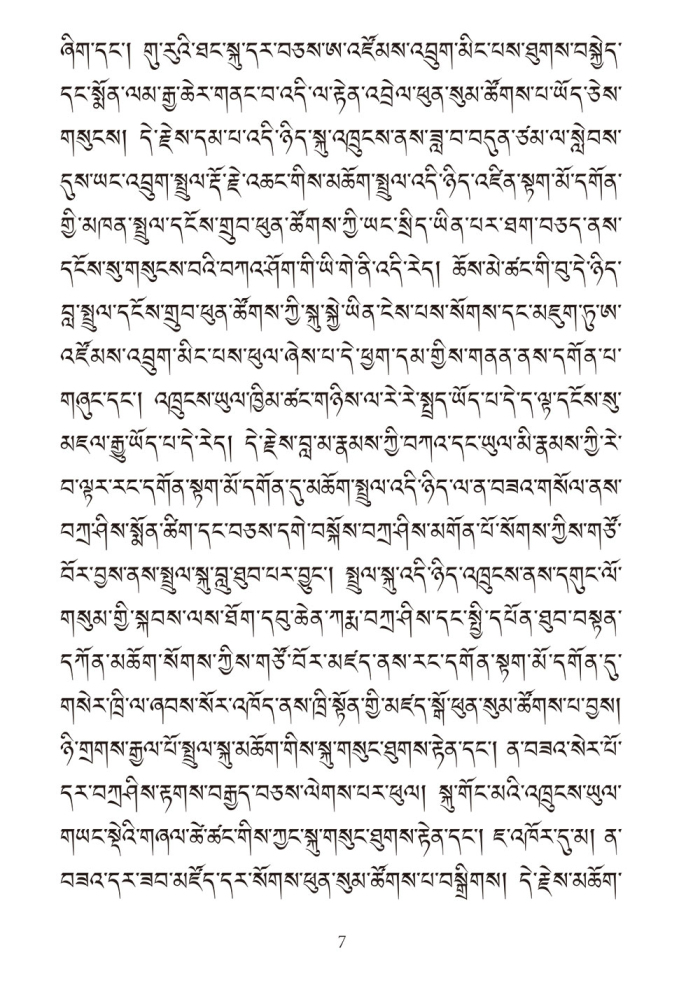 ཞིག་དང་། གུ་རུའི་ཐང་སྐུ་དར་བཅས་ཨ་འཛོམས་འབྲུག་མིང་པས་ཐུགས་བསྐྱེད་
དང་སྨོན་ལམ་རྒྱ་ཆེར་གནང་བ་འདི་ལ་རྟེན་འབྲེལ་ཕུན་སུམ་ཚོགས་པ་ཡོད་ཅེས་
གསུངས། དེ་རྗེས་དམ་པ་འདི་ཉིད་སྐུ་འཁྲུངས་ནས་ཟླ་བ་བདུན་ཙམ་ལ་སླེབས་
དུས་ཡང་འབྲུག་སྤྲུལ་རྡོ་རྗེ་འཆང་གིས་མཆོག་སྤྲུལ་འདི་ཉིད་འཛིན་སྟག་མོ་དགོན་
གྱི་མཁན་སྤྲུལ་དངོས་གྲུབ་ཕུན་ཚོགས་ཀྱི་ཡང་སྲིད་ཡིན་པར་ཐག་བཅད་ནས་
དངོས་སུ་གསུངས་བའི་བཀའ་ཤོག་གི་ཡི་གེ་ནི་འདི་རེད། ཆོས་མེ་ཚང་གི་བུ་དེ་ཉིད་
བླ་སྤྲུལ་དངོས་གྲུབ་ཕུན་ཚོགས་ཀྱི་སྐུ་སྐྱེ་ཡིན་ངེས་པས་སོགས་དང་མཇུག་ཏུ་ཨ་
འཛོམས་འབྲུག་མིང་པས་ཕུལ་ཞེས་པ་དེ་ཕྱག་དམ་གྱིས་གནན་ནས་དགོན་པ་
གཞུང་དང་། འཁྲུངས་ཡུལ་ཁྱིམ་ཚང་གཉིས་ལ་རེ་རེ་སྤྲད་ཡོད་པ་དེ་ད་ལྟ་དངོས་སུ་
མཇལ་རྒྱུ་ཡོད་པ་དེ་རེད། དེ་རྗེས་བླ་མ་རྣམས་ཀྱི་བཀའ་དང་ཡུལ་མི་རྣམས་ཀྱི་རེ་
བ་ལྟར་རང་དགོན་སྟག་མོ་དགོན་དུ་མཆོག་སྤྲུལ་འདི་ཉིད་ལ་ན་བཟའ་གསོལ་ནས་
བཀྲ་ཤིས་སྨོན་ཚིག་དང་བཅས་དགེ་བསྐོས་བཀྲ་ཤིས་མགོན་པོ་སོགས་ཀྱིས་གཙོ་
བོར་བྱས་ནས་སྤྲུལ་སྐུ་བླུ་ཐུབ་པར་བྱུང་། སྤྲུལ་སྐུ་འདི་ཉིད་འཁྲུངས་ནས་དགུང་ལོ་
གསུམ་གྱི་སྐབས་ལས་ཐོག་དབུ་ཆེན་ཀརྨ་བཀྲ་ཤིས་དང་སྤྱི་དཔོན་ཐུབ་བསྟན་
དཀོན་མཆོག་སོགས་ཀྱིས་གཙོ་བོར་མཛད་ནས་རང་དགོན་སྟག་མོ་དགོན་དུ་
གསེར་ཁྲི་ལ་ཞབས་སོར་འཁོད་ནས་ཁྲི་སྟོན་གྱི་མཛད་སྒོ་ཕུན་སུམ་ཚོགས་པ་བྱས།
ཉི་གྲགས་རྒྱལ་པོ་སྤྲུལ་སྐུ་མཆོག་གིས་སྐུ་གསུང་ཐུགས་རྟེན་དང་། ན་བཟའ་སེར་པོ་
དར་བཀྲ་ཤིས་རྟགས་བརྒྱད་བཅས་ལེགས་པར་ཕུལ། སྐུ་གོང་མའི་འཁྲུངས་ཡུལ་
གཡང་སྡེའི་གཞལ་ཚེ་ཚང་གིས་ཀྱང་སྐུ་གསུང་ཐུགས་རྟེན་དང་། ཇ་འཁོར་དུ་མ། ན་
བཟའ་དར་ཟབ་མཛོད་དར་སོགས་ཕུན་སུམ་ཚོགས་པ་བསྒྲིགས། དེ་རྗེས་མཆོག་
7